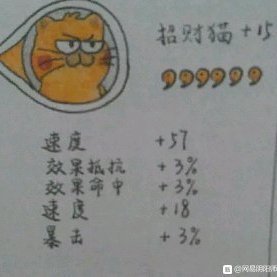 招财猫 +15
速度 +57
效果抵抗 +3%
效果命中 +3%
速度 +18
暴击 +3%